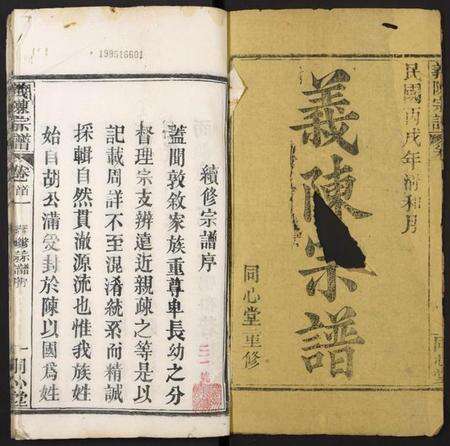 義陳宗譜
民國丙戌年清和月
義陳宗譜
同心堂重修
同心堂
199516601
續修宗譜序
蓋聞敦敘家族重尊卑長幼之分
督理宗支辨遠近親疎之等是以
記載周詳不至混淆統系而精誠
採輯自然貫澈源流也惟我族姓
始自胡公滿受封於陳以國爲姓
義陳宗譜
卷首
一
同心堂